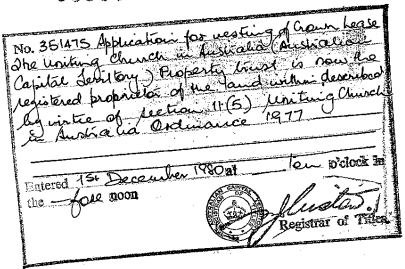 No. 351475 Application for vesting of Crown Lease
The Uniting Church in Australia (Australian
Capital Territory) Property trust is now the
registered proprietor of the land within described
by virtue of section 11(5) Uniting Church
in Australia Ordinance 1977
Entered 1st December 1980 at ten o'clock in
the fore noon
Registrar of Titles